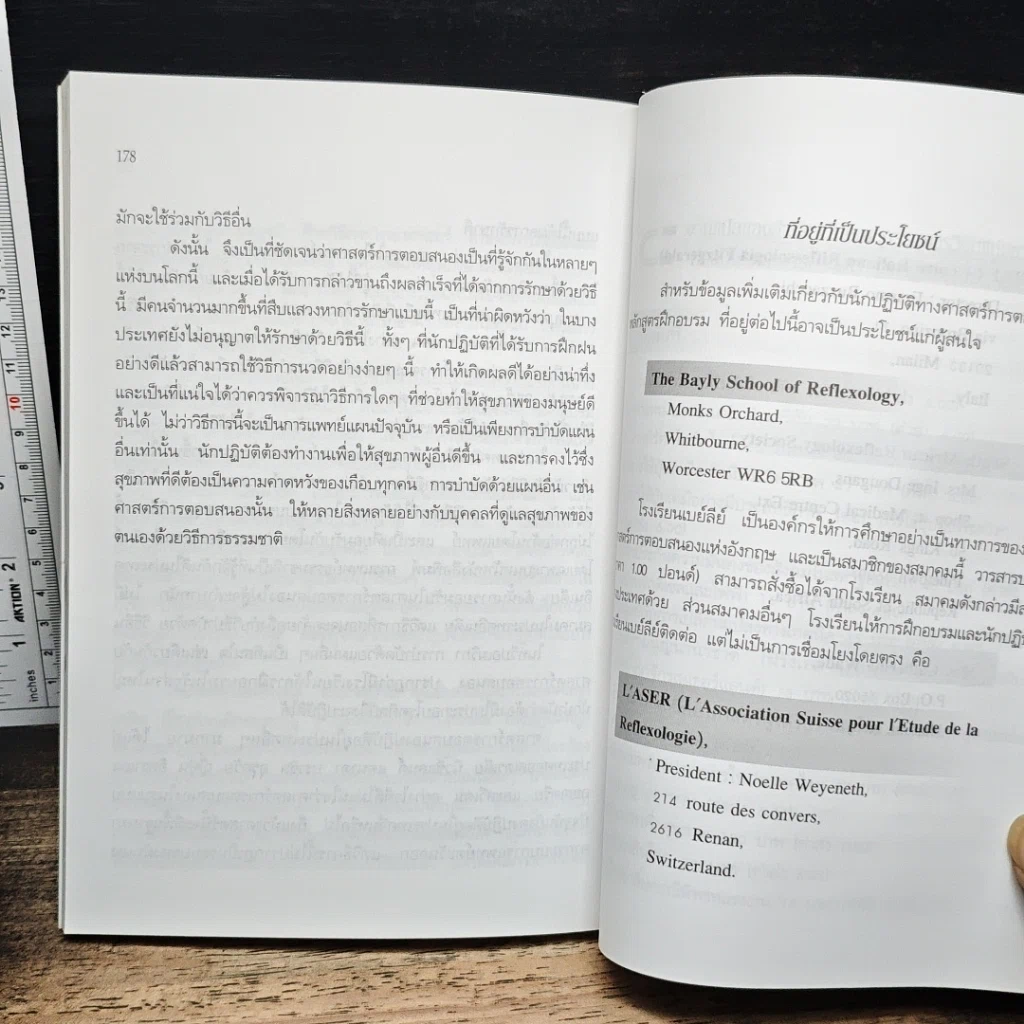 178
มักจะใช้ร่วมกับวิธีอื่น
ดังนั้น จึงเป็นที่ชัดเจนว่าศาสตร์การตอบสนองเป็นที่รู้จักกันในหลายๆ
แห่งบนโลกนี้ และเมื่อได้รับการกล่าวขานถึงผลสำเร็จที่ได้จากการรักษาด้วยวิธี
นี้ มีคนจำนวนมากขึ้นที่สืบแสวงหาการรักษาแบบนี้ เป็นที่น่าผิดหวังว่า ในบาง
ประเทศยังไม่อนุญาตให้รักษาด้วยวิธีนี้ ทั้งๆ ที่นักปฏิบัติที่ได้รับการฝึกฝน
อย่างดีแล้วสามารถใช้วิธีการนวดอย่างง่ายๆ นี้ ทำให้เกิดผลดีได้อย่างน่าทึ่ง
และเป็นที่แน่ใจได้ว่าควรพิจารณาวิธีการใดๆ ที่ช่วยทำให้สุขภาพของมนุษย์ดี
ขึ้นได้ ไม่ว่าวิธีการนี้จะเป็นการแพทย์แผนปัจจุบัน หรือเป็นเพียงการบำบัดแผน
อื่นเท่านั้น นักปฏิบัติต้องทำงานเพื่อให้สุขภาพผู้อื่นดีขึ้น และการคงไว้ซึ่ง
สุขภาพที่ดีต้องเป็นความคาดหวังของเกือบทุกคน การบำบัดด้วยแผนอื่น เช่น
ศาสตร์การตอบสนองนั้น ให้หลายสิ่งหลายอย่างกับบุคคลที่ดูแลสุขภาพของ
ตนเองด้วยวิธีการธรรมชาติ
ที่อยู่ที่เป็นประโยชน์
สำหรับข้อมูลเพิ่มเติมเกี่ยวกับนักปฏิบัติทางศาสตร์การ
หลักสูตรฝึกอบรม ที่อยู่ต่อไปนี้อาจเป็นประโยชน์แก่ผู้สนใจ
The Bayly School of Reflexology,
Monks Orchard,
Whitbourne,
Worcester WR6 5RB
โรงเรียนเบย์ลีย์ เป็นองค์กรให้การศึกษาอย่างเป็นทางการของ
การตอบสนองแห่งอังกฤษ และเป็นสมาชิกของสมาคมนี้ วารสาร
1.00 ปอนด์) สามารถสั่งซื้อได้จากโรงเรียน สมาคมดังกล่าวมี
ประเทศด้วย ส่วนสมาคมอื่นๆ โรงเรียนให้การฝึกอบรมและ
เบย์ลีย์ติดต่อ แต่ไม่เป็นการเชื่อมโยงโดยตรง คือ
L'ASER (L'Association Suisse pour l'Etude de la
Reflexologie),
President : Noelle Weyeneth,
214 route des convers,
2616 Renan,
Switzerland.
AKTION
inches
1 2
1 2 3 4 5 6 7 8 9 10 11 12 13